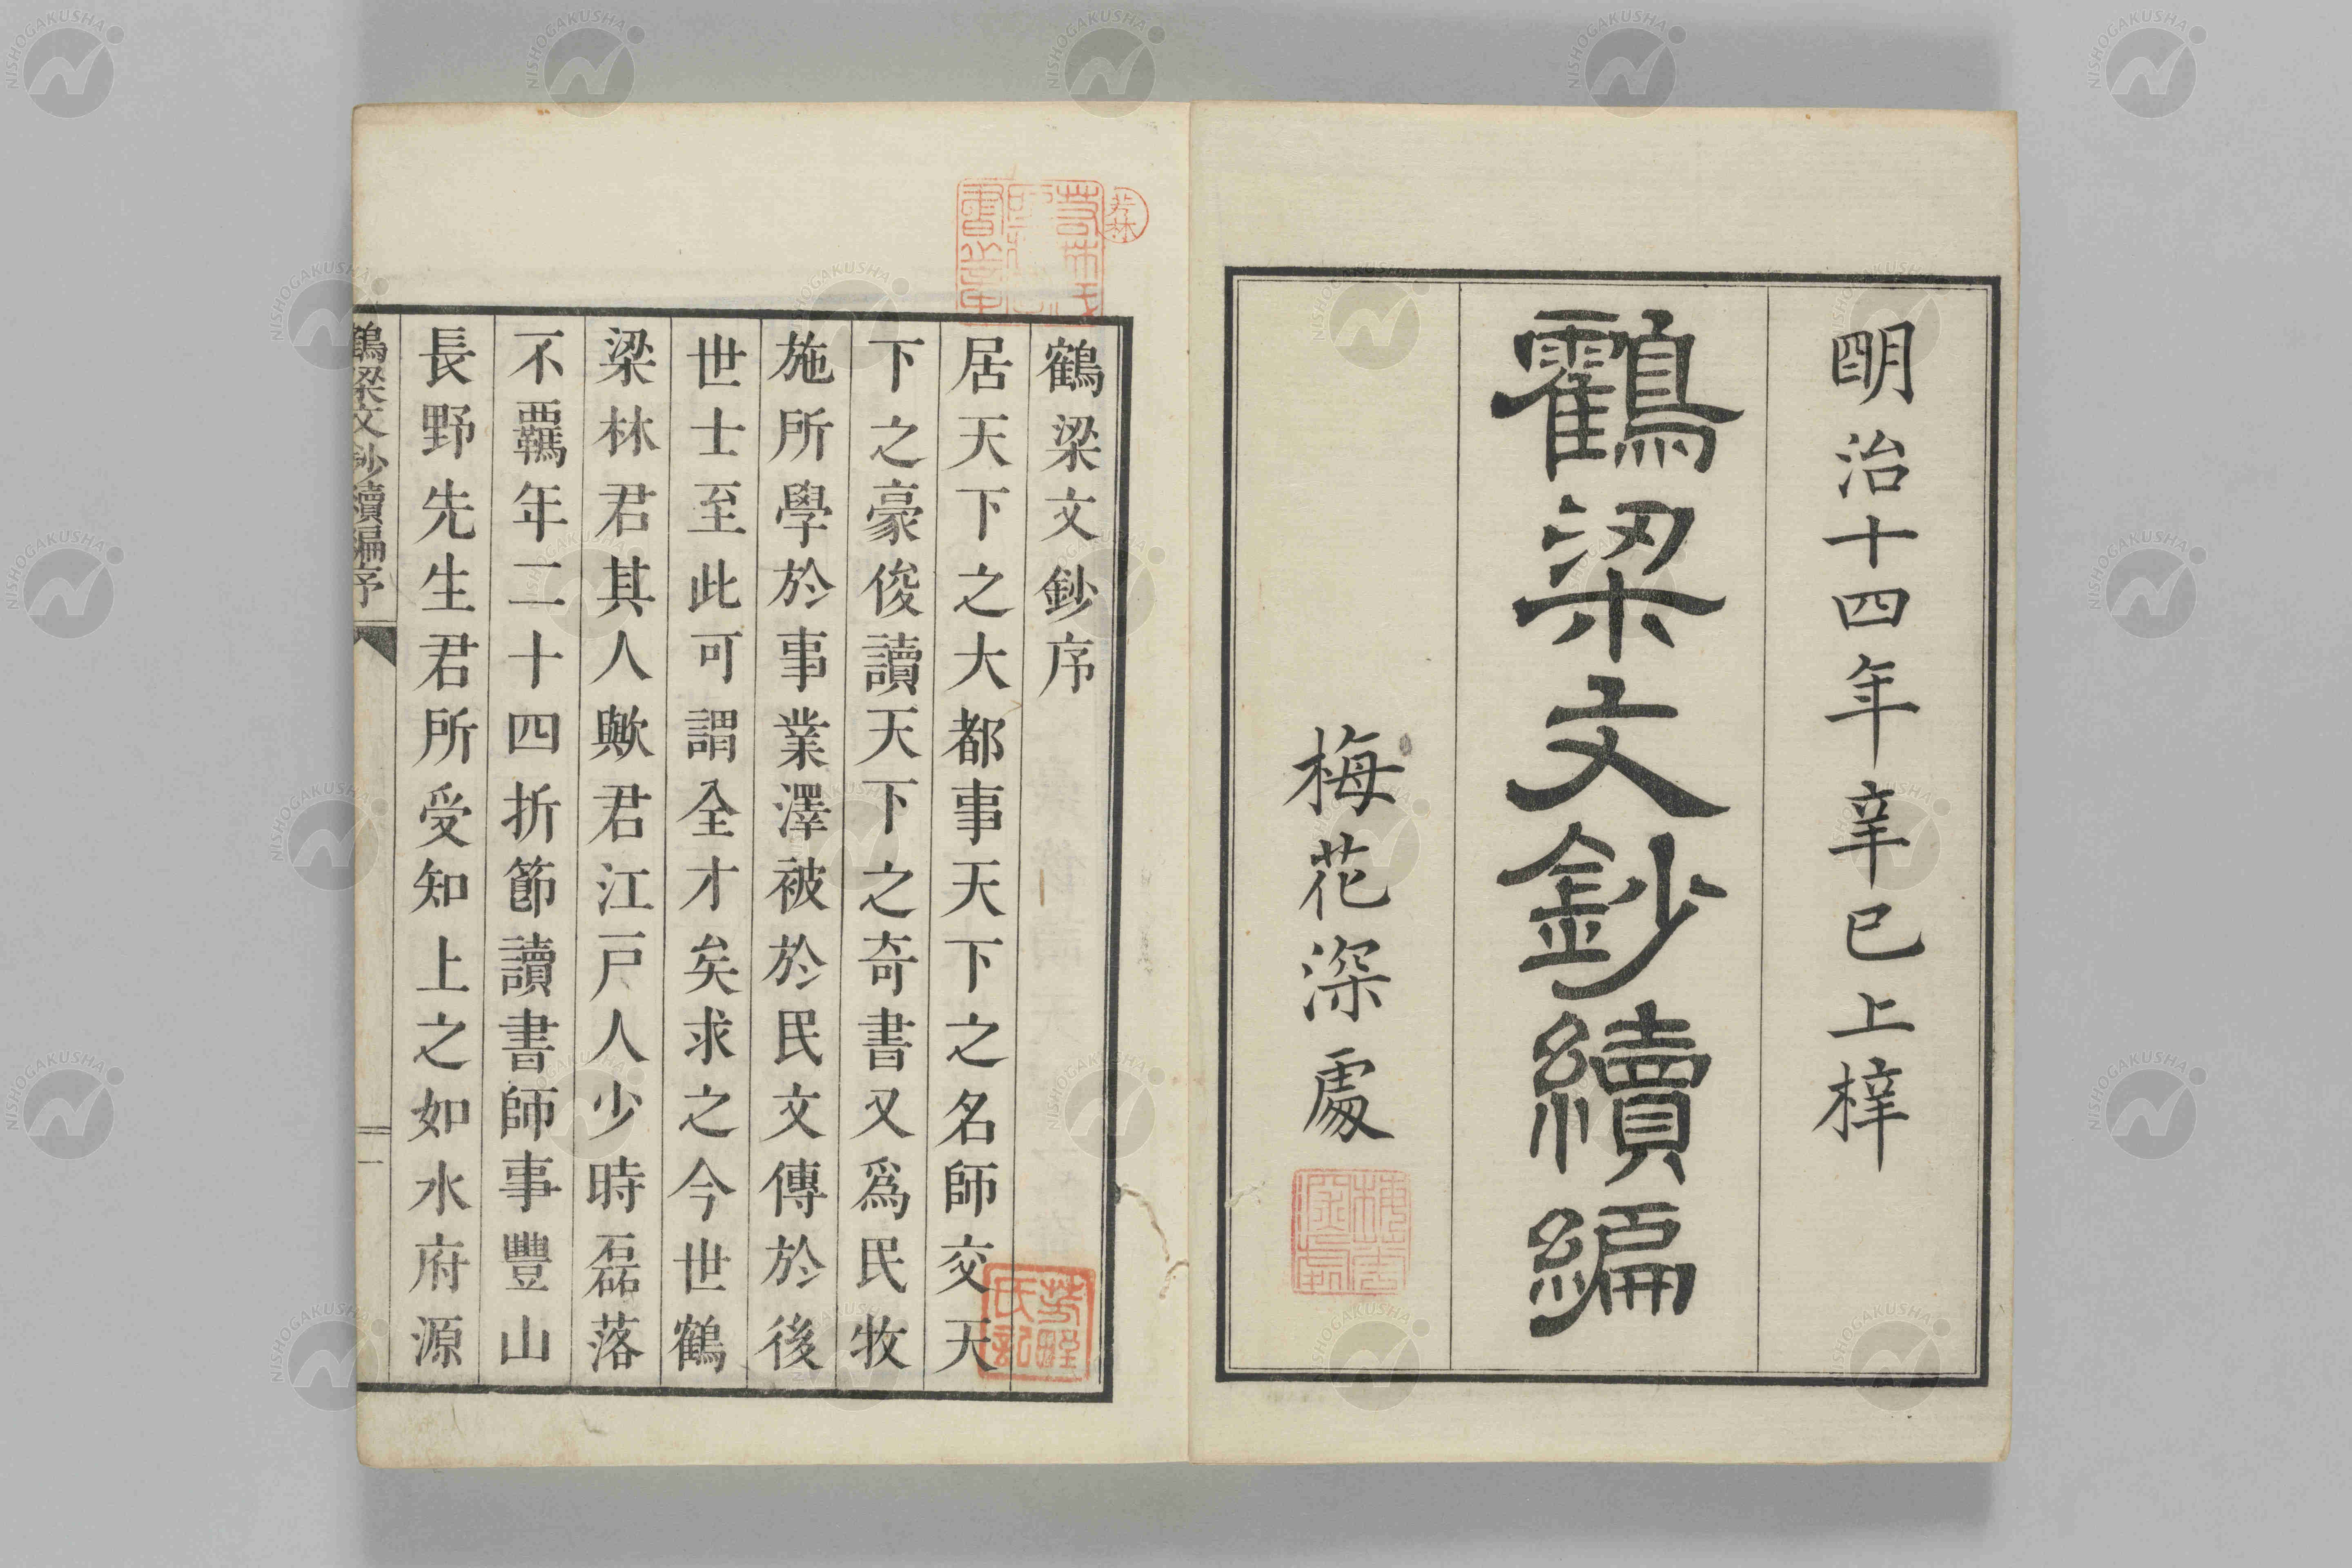 明治十四年辛巳上梓
鸖梁文鈔續編
梅花深處
鶴梁文鈔序
居天下之大都事天下之名師交天
下之豪俊讀天下之奇書又爲民牧
施所學於事業澤被於民文傳於後
世士至此可謂全才矣求之今世鶴
梁林君其人歟君江戸人少時磊落
不羈年二十四折節讀書師事豐山
長野先生君所受知上之如水府源
鶴梁文鈔續編序
一
NISHOGAKUSHA